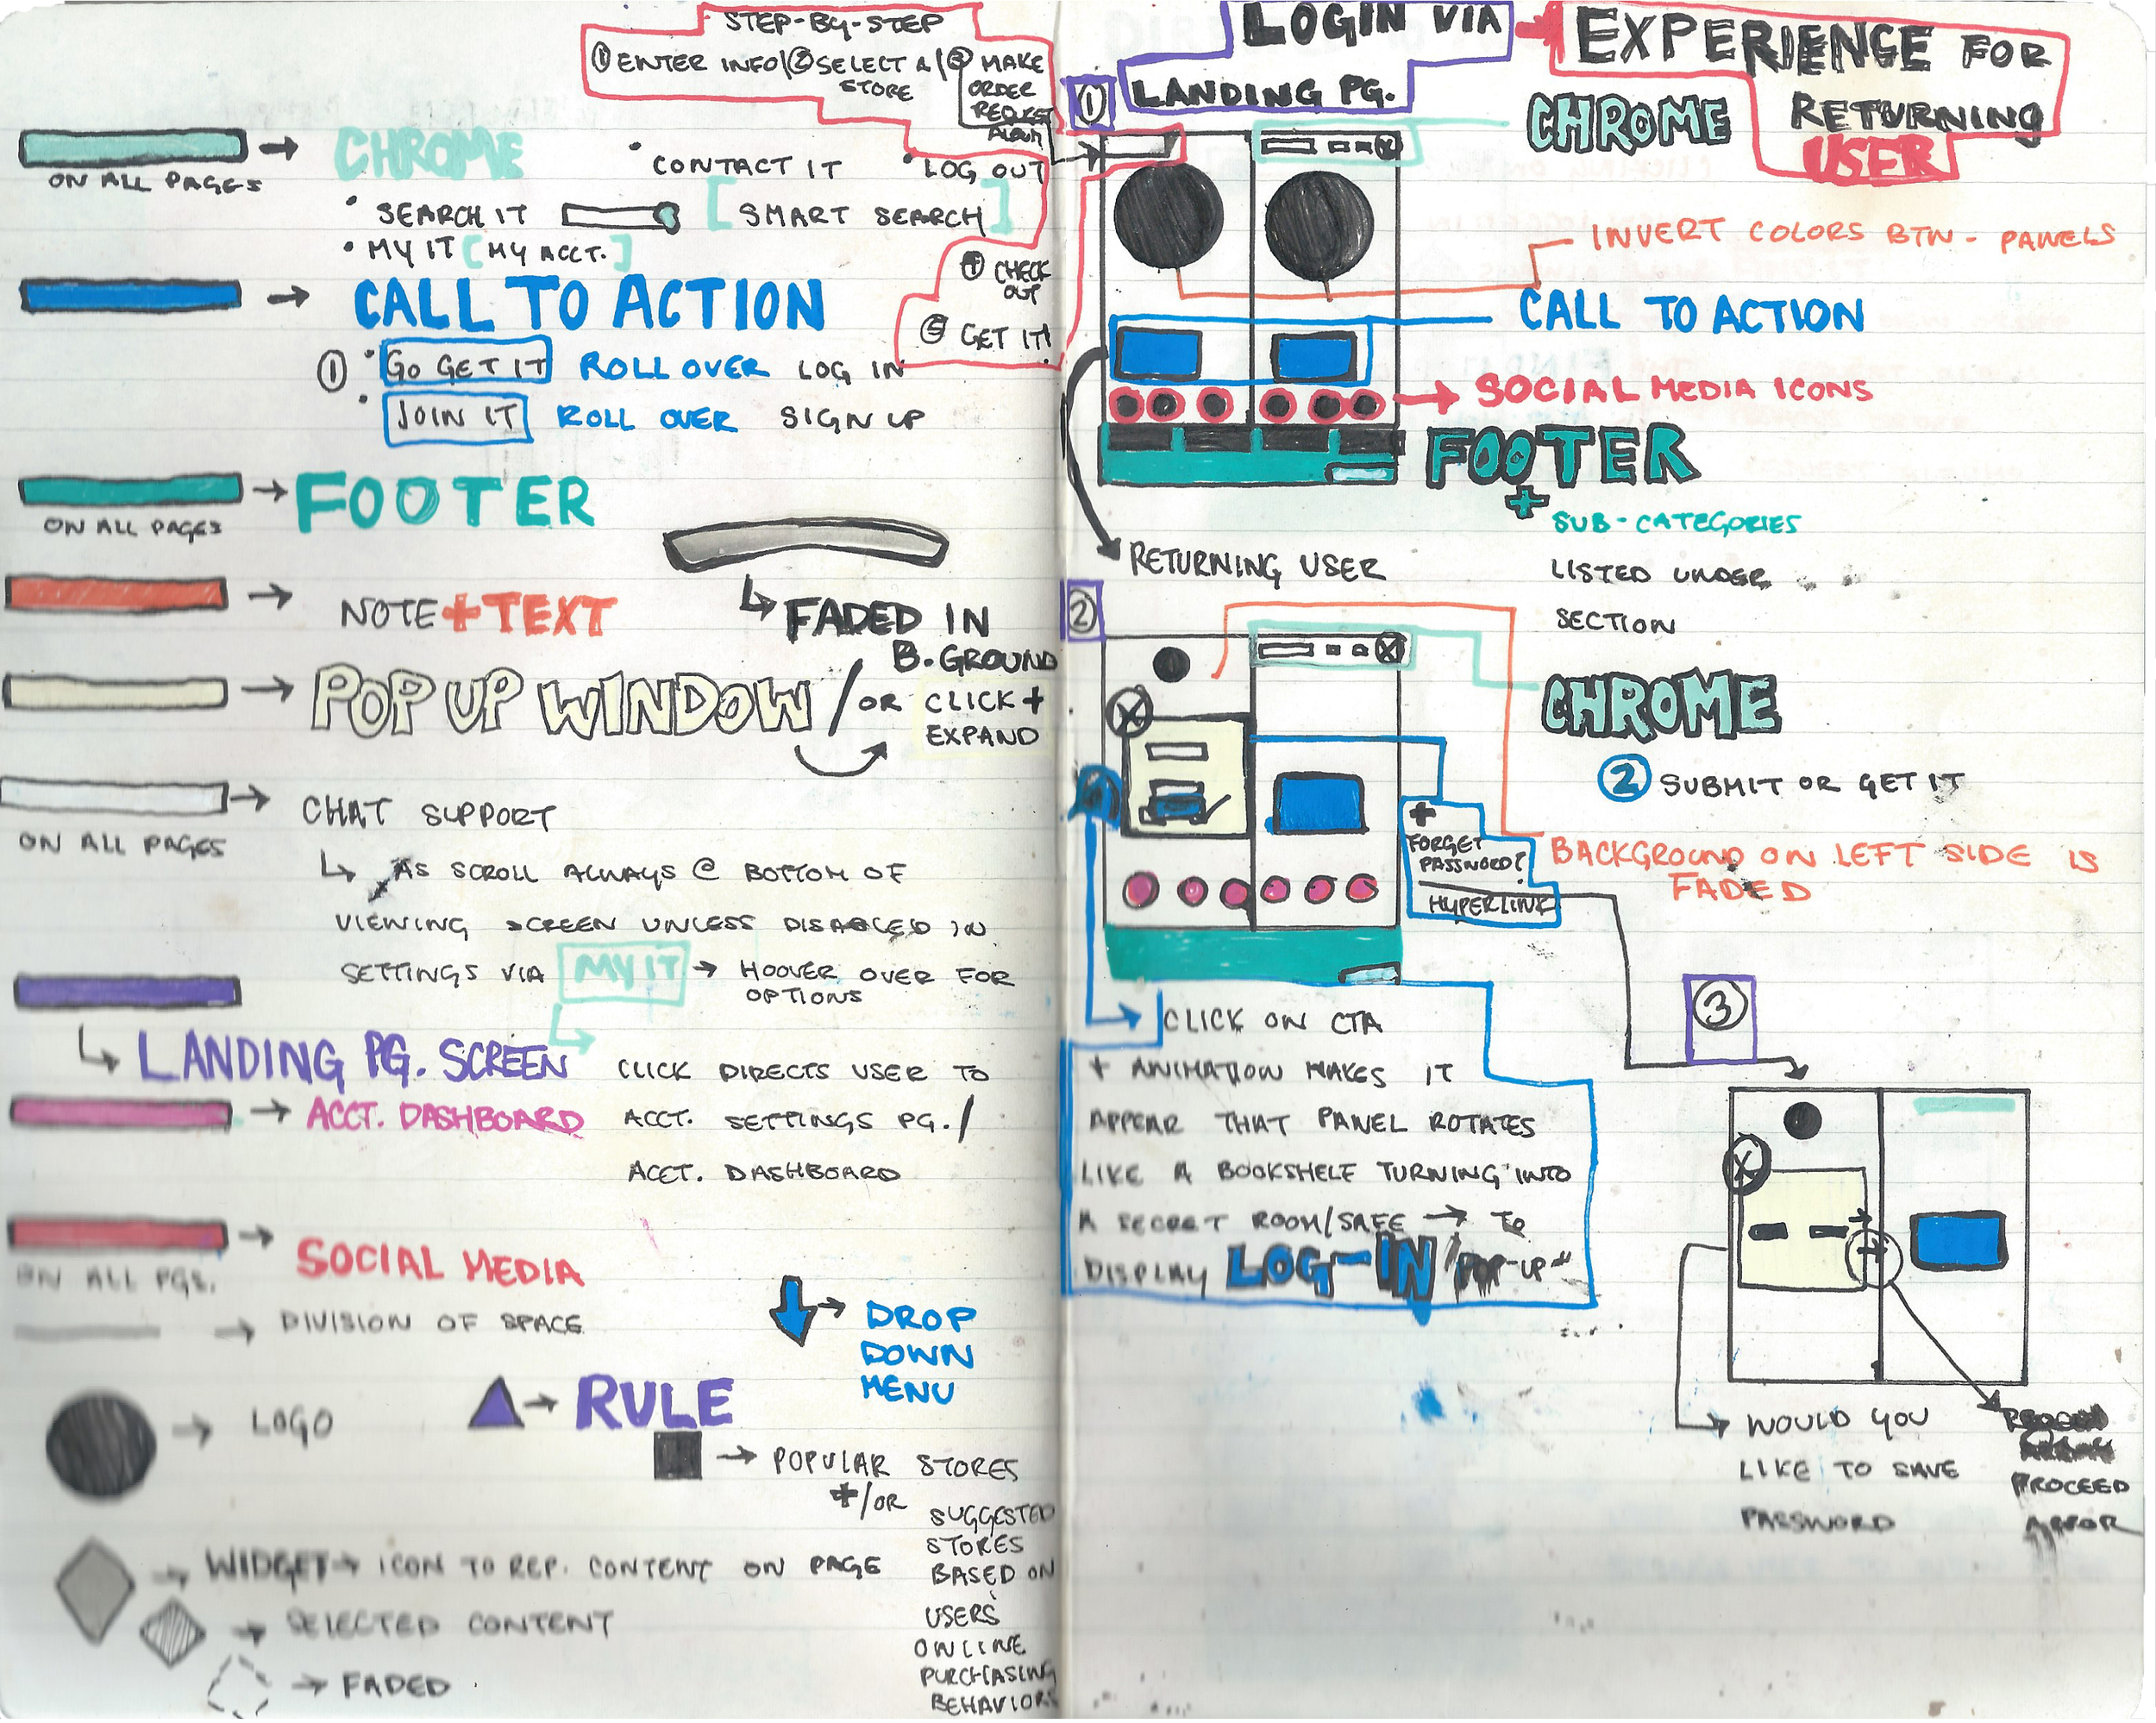 STEP-BY-STEP
① ENTER INFO/② SELECT A/③ MAKE
STORE
ORDER
REQUEST
ALBUM
④ CHECK
OUT
⑤ GET IT!
ON ALL PAGES
CHROME
• CONTACT IT • LOG OUT
• SEARCH IT [SMART SEARCH]
• MY IT [MY ACCT.]
CALL TO ACTION
① • GO GET IT ROLL OVER LOG IN
• JOIN IT ROLL OVER SIGN UP
FOOTER
ON ALL PAGES
NOTE + TEXT
FADED IN
B. GROUND
POP UP WINDOW / OR CLICK +
EXPAND
CHAT SUPPORT
ON ALL PAGES
AS SCROLL ALWAYS @ BOTTOM OF
VIEWING SCREEN UNLESS DISABLED IN
SETTINGS VIA MY IT → HOOVER OVER FOR
OPTIONS
LANDING PG. SCREEN
CLICK DIRECTS USER TO
ACCT. SETTINGS PG./
ACCT. DASHBOARD
ACCT. DASHBOARD
SOCIAL MEDIA
ON ALL PGS.
DIVISION OF SPACE
DROP
DOWN
MENU
LOGO
RULE
POPULAR STORES
+/OR
SUGGESTED
STORES
BASED ON
USERS'
ONLINE
PURCHASING
BEHAVIORS
WIDGET → ICON TO REP. CONTENT ON PAGE
SELECTED CONTENT
FADED
LOGIN VIA
LANDING PG.
EXPERIENCE FOR
RETURNING
USER
①
CHROME
INVERT COLORS BTN - PANELS
CALL TO ACTION
SOCIAL MEDIA ICONS
FOOTER
+
SUB-CATEGORIES
LISTED UNDER
SECTION
RETURNING USER
②
CHROME
② SUBMIT OR GET IT
+
FORGET
PASSWORD?
HYPERLINK
BACKGROUND ON LEFT SIDE IS
FADED
CLICK ON CTA
+ ANIMATION MAKES IT
APPEAR THAT PANEL ROTATES
LIKE A BOOKSHELF TURNING INTO
A SECRET ROOM/SAFE → TO
DISPLAY LOG-IN "POP-UP"
③
WOULD YOU
LIKE TO SAVE
PASSWORD
PROCEED